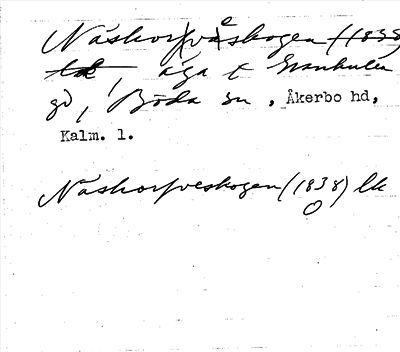 Näskorfveskogen (1838)
lk, äga t Grankullen
gd, Böda sn, Åkerbo hd,
Kalm. l.
Näskorfveskogen (1838) lk